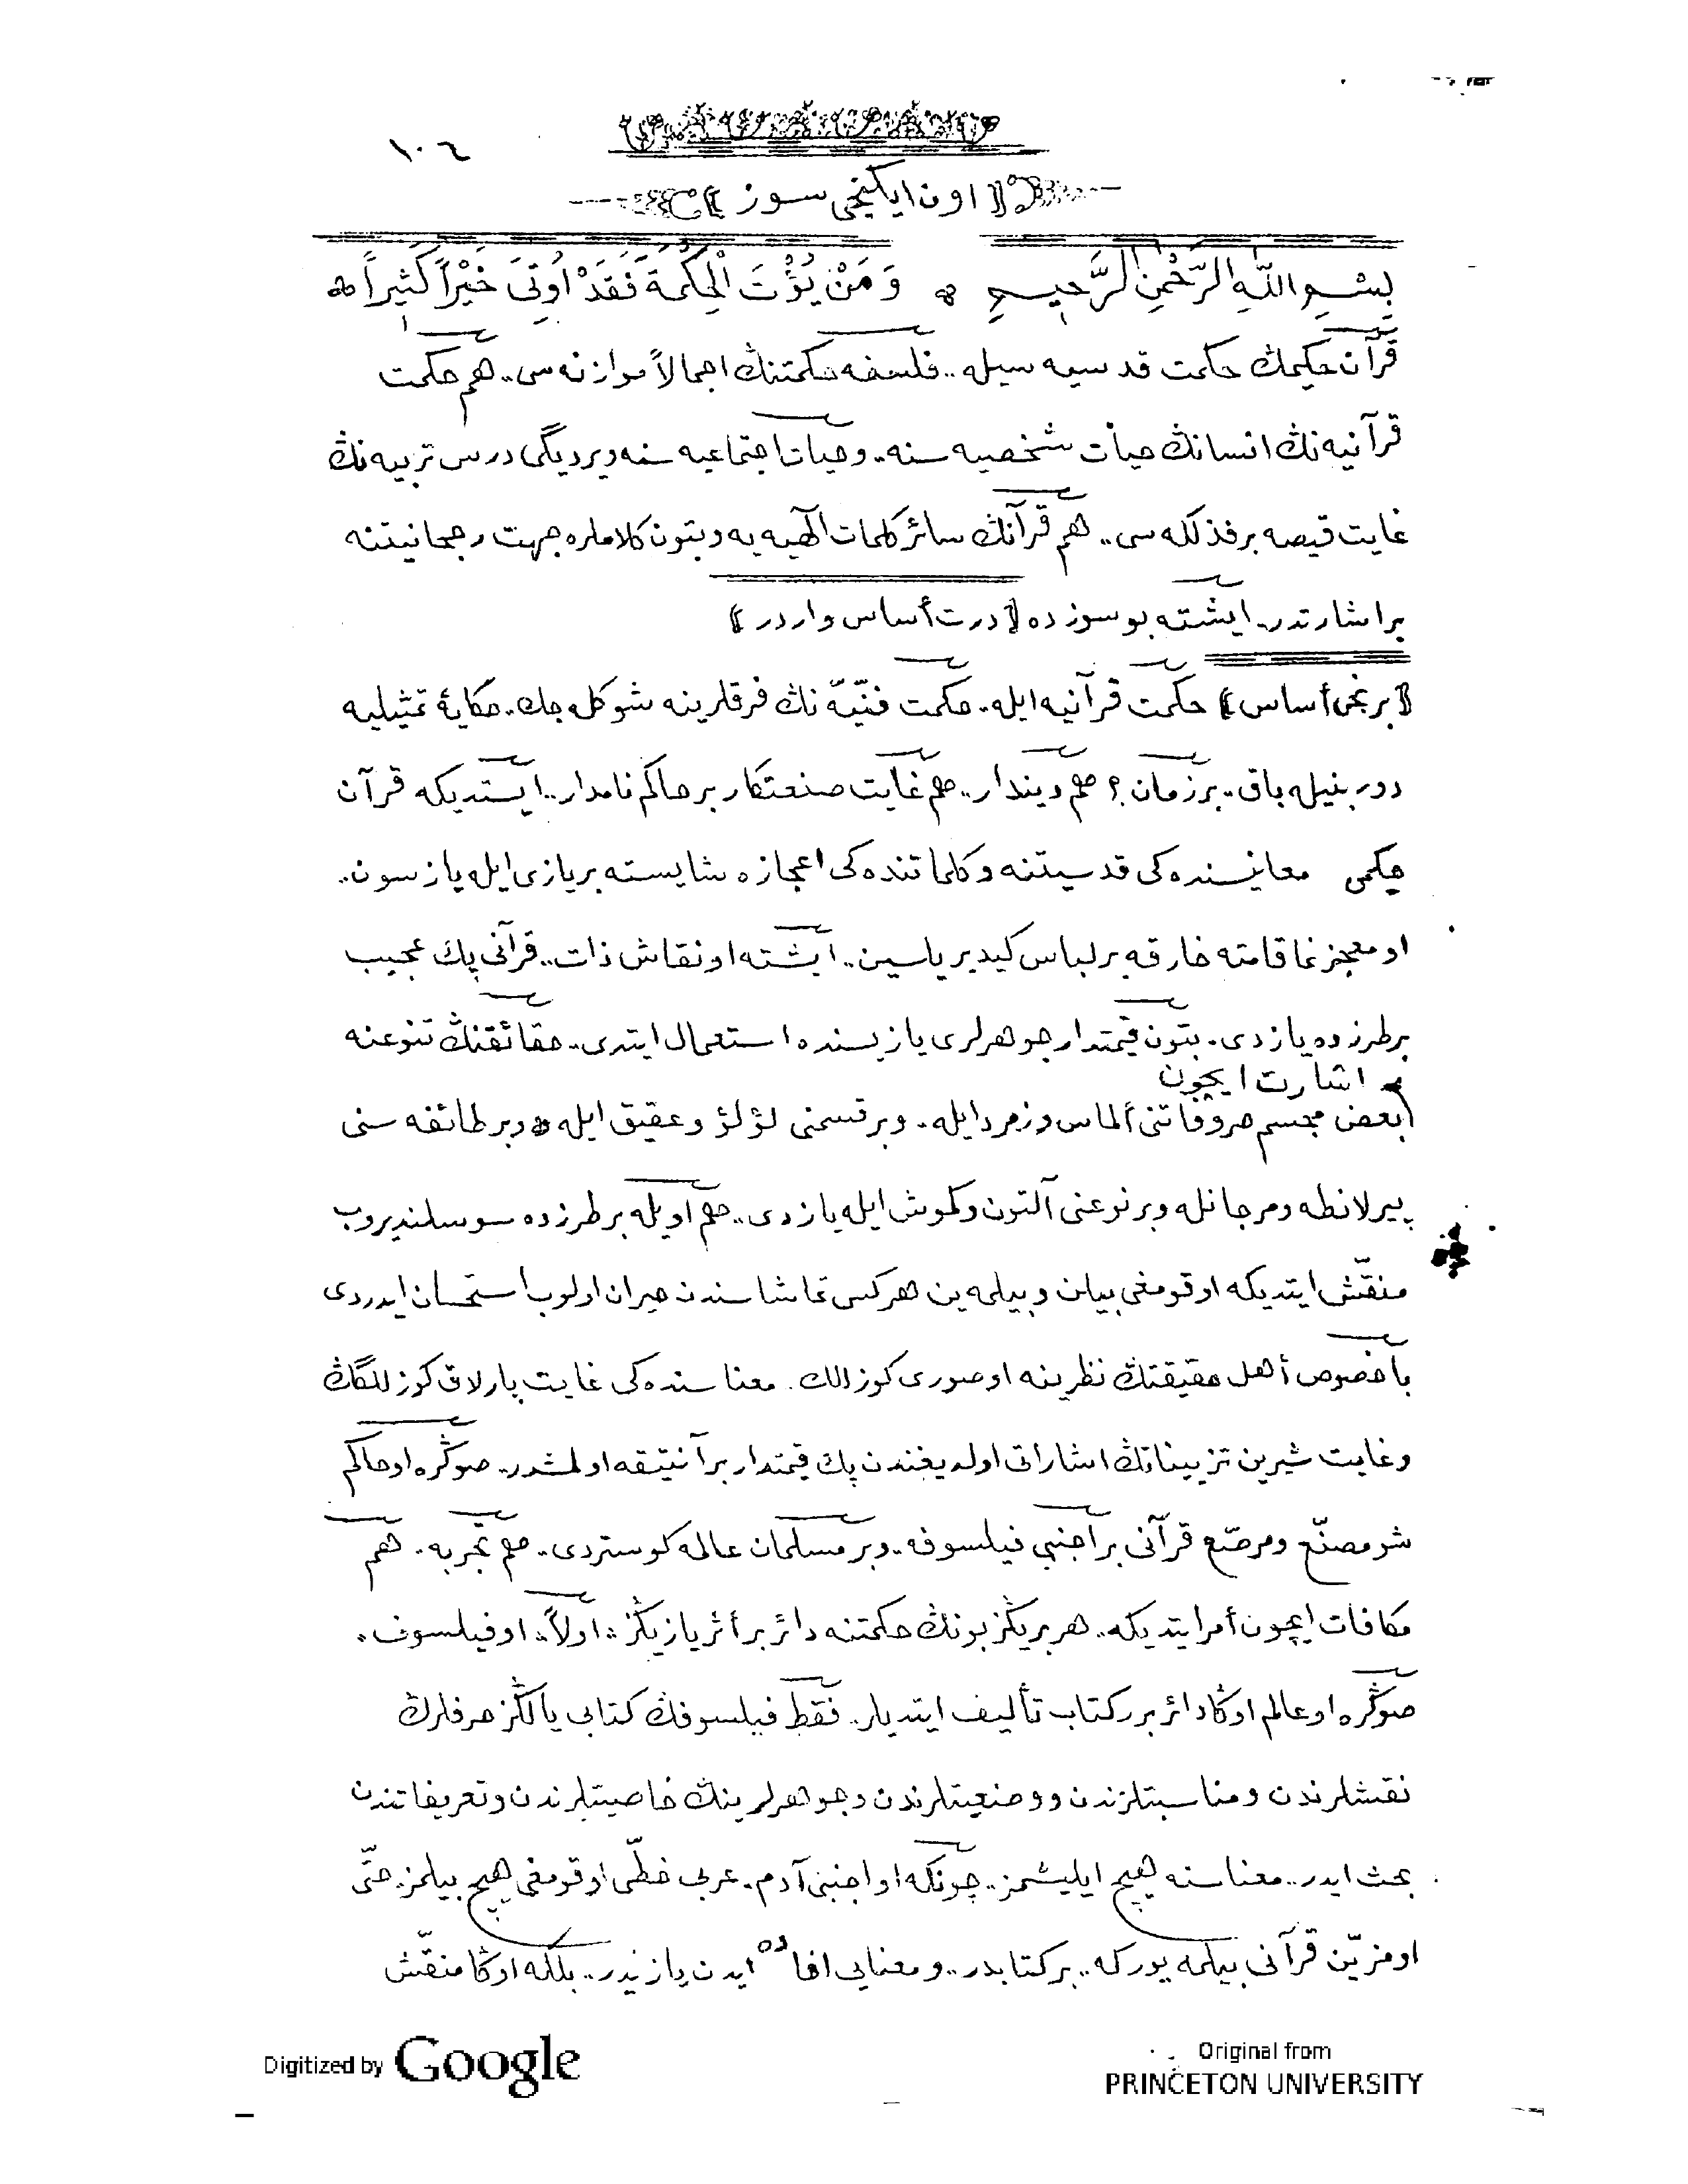 ١٠٦
﴿ اون ايكنجى سوز ﴾
بِسْمِ اللّٰهِ الرَّحْمٰنِ الرَّحِيمِ ۞ وَمَنْ يُؤْتَ الْحِكْمَةَ فَقَدْ اُوتِىَ خَيْرًا كَثِيرًا ۞
قرآن حكيمڭ حكمت قدسيه سيله.. فلسفه حكمتنڭ اجمالاً موازنه سى.. هم حكمت
قرآنيه نڭ انسانڭ حيات شخصيه سنه.. وحيات اجتماعيه سنه ويرديگى درس تربيه نڭ
غايت قيصه بر فذلكه سى.. هم قرآنڭ سائر كلمات الٓهيه يه وبتون كلاملره جهت رجحانيتنه
بر اشارتدر. ايشته بو سوزده ﴿ درت أساس واردر ﴾
﴿ برنجى أساس ﴾ حكمت قرآنيه ايله.. حكمت فنّيّه نڭ فرقلرينه شو كله جك.. حكايۀ تمثيليه
دوربنيله باق.. بر زمان؟ هم ديندار.. هم غايت صنعتكار بر حاكم نامدار.. ايستديكه قرآن
حكيمى معانيسنده كى قدسيتنه وكلماتنده كى اعجازه شايسته بر يازى ايله يازسون..
او معجزنما قامته خارقه بر لباس كيديرياسين.. ايشته او نقاش ذات.. قرآنى پك عجيب
بر طرزده يازدى. بتون قيمتدار جوهرلرى يازيسنده استعمال ايتدى.. حقائقنڭ تنوعنه
اشارت ايچون
بعض مجسم حروفاتنى ألماس وزمرد ايله.. وبر قسمنى لؤلؤ وعقيق ايله ۞ وبر طائفه سنى
پيرلانطه ومرجانله وبر نوعنى آلتون وكموش ايله يازدى.. هم اويله بر طرزده سوسلنديروب
منقّش ايتديكه اوقومغى بيلن وبيلمه ين هركس تماشاسندن حيران اولوب استحسان ايدردى
باخصوص أهل حقيقتڭ نظرينه او صورى كوزللك. معناسنده كى غايت پارلاق كوزللگڭ
وغايت شيرين تزييناتڭ اشاراتى اولديغندن پك قيمتدار بر آنتيقه اولمشدر.. صوڭره او حاكم
شو مصنّع ومرصّع قرآنى بر اجنبى فيلسوفه.. وبر مسلمان عالمه كوستردى.. هم تجربه.. هم
مكافات ايچون أمر ايتديكه.. هر بريڭز بونڭ حكمتنه دائر بر أثر يازيڭز: اولاً: او فيلسوف.
صوڭره او عالم اوڭا دائر برر كتاب تأليف ايتديلر. فقط فيلسوفڭ كتابى يالڭز حرفلرڭ
نقشلرندن ومناسبتلرندن ووضعيتلرندن وجوهرلرينڭ خاصيتلرندن وتعريفاتندن
بحث ايدر.. معناسنه هيچ ايليشمز.. چونكه او اجنبى آدم. عربى خطّى اوقومغى هيچ بيلمز. حتّى
او مزيّن قرآنى بيلمه يوركه.. بر كتابدر.. ومعنايى افاده ايدن يازيدر.. بلكه اوڭا منقّش
Digitized by Google
Original from
PRINCETON UNIVERSITY